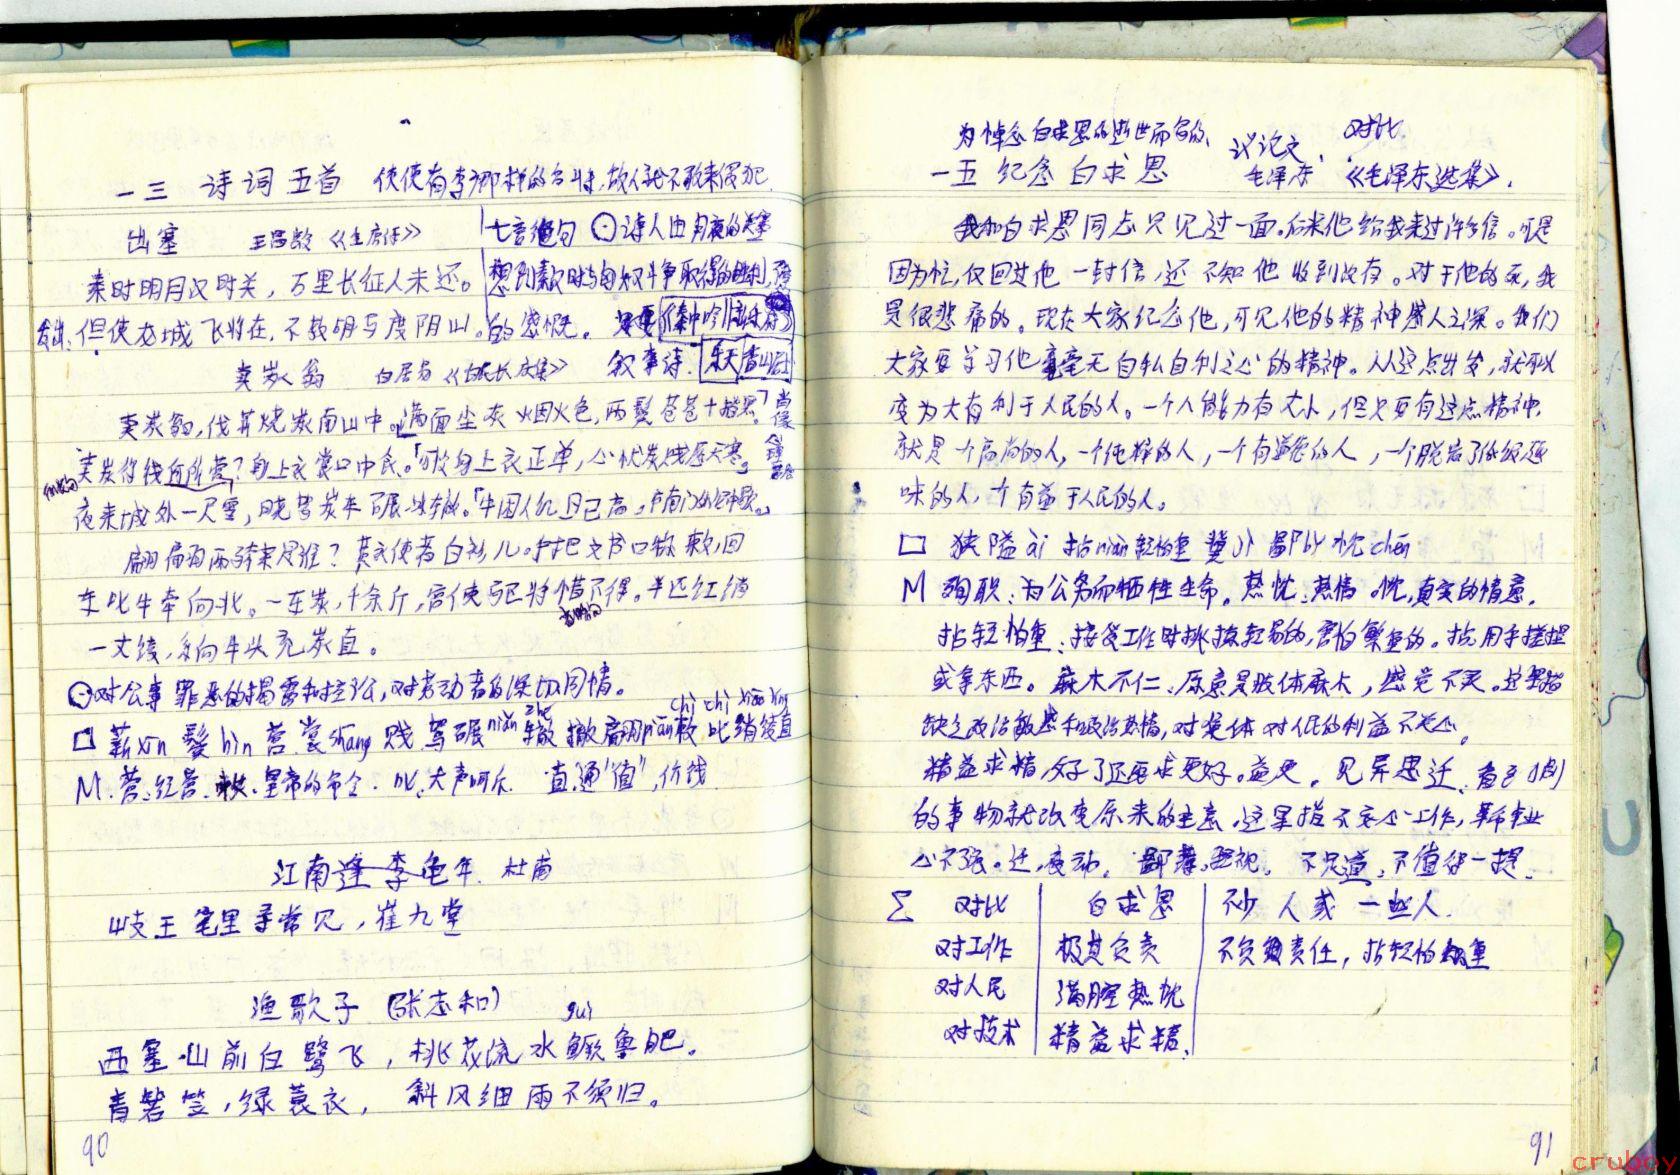 一三 诗词五首 使有李那样的名将,敌人就不敢来侵犯
出塞 王昌龄
七言绝句 ⊙诗人由月夜的关塞
秦时明月汉时关,万里长征人未还。
想到秦汉时与匈奴斗争取得的胜利,
但使龙城飞将在,不教胡马度阴山。
的感慨。《秦中吟》
卖炭翁 白居易《白氏长庆集》
叙事诗.
卖炭翁,伐薪烧炭南山中。满面尘灰烟火色,两鬓苍苍十指黑。
肖像
卖炭得钱何所营?身上衣裳口中食。可怜身上衣正单,心忧炭贱愿天寒。
夜来城外一尺雪,晓驾炭车碾冰辙。牛困人饥日已高,市南门外泥中歇。
翩翩两骑来是谁?黄衣使者白衫儿。手把文书口称敕,回
车叱牛牵向北。一车炭,千余斤,宫使驱将惜不得。半匹红绡
一丈绫,系向牛头充炭直。
⊙对公事罪恶的揭露和控讼,对劳动者的深切同情。
chì chì xiāo líng
niǎn zhé
□ 薪xīn 鬓bìn 营 裳shang 贱 驾 碾 辙 撤 翩piān 敕 叱 绡 绫 直
M.营:经营. 敕:皇帝的命令. 叱:大声呵斥. 直:通“值”,价钱.
江南逢李龟年. 杜甫
岐王宅里寻常见,崔九堂
渔歌子 (张志和)
guì
西塞山前白鹭飞,桃花流水鳜鱼肥。
青箬笠,绿蓑衣, 斜风细雨不须归。
90
为悼念白求恩的逝世而写的、 议论文、 对比
一五 纪念白求恩 毛泽东 《毛泽东选集》.
我和白求恩同志只见过一面。后来他给我来过许多信。可是
因为忙,仅回过他一封信,还不知他收到没有。对于他的死,我
是很悲痛的。现在大家纪念他,可见他的精神感人之深。我们
大家要学习他毫无自私自利之心的精神。从这点出发,就可以
变为大有利于人民的人。一个人能力有大小,但只要有这点精神.
就是一个高尚的人,一个纯粹的人,一个有道德的人,一个脱离了低级趣
味的人,一个有益于人民的人。
□ 狭隘ài 拈niān轻怕重 冀jì 鄙bǐ 忱chén
M 殉职:为公务而牺牲生命。热忱:热情。忱,真实的情意.
拈轻怕重:接受工作时挑拣轻易的,害怕繁重的。拈,用手搓捏
或拿东西。麻木不仁:原意是肢体麻木,感觉不灵。这里指
缺乏政治敏感和政治热情,对集体对人民的利益不关心。
精益求精,好了还要求更好。益,更。见异思迁:看到别
的事物就改变原来的主意。这里指不安心工作,革命事业
心不强。迁,变动。鄙薄:轻视。不足道:不值得一提.
∑ 对比 白求恩 不少人或一些人.
对工作 极其负责 不负责任,拈轻怕重
对人民 满腔热忱
对技术 精益求精.
91
cruboy